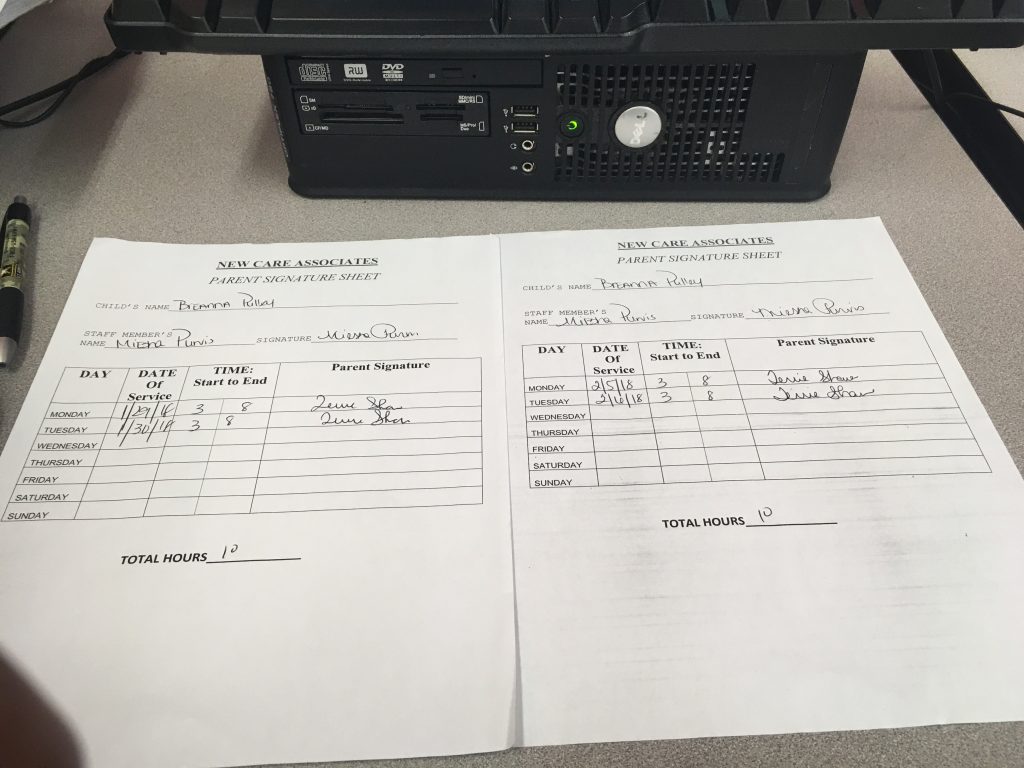 COMPACT
DISC
RW
DVD
MULTI
SM
xD
CF/MD
SD/mini
MMC/RS
MS/Pro/
Duo
DELL
NEW CARE ASSOCIATES
PARENT SIGNATURE SHEET
CHILD'S NAME Breanna Pulley
STAFF MEMBER'S
NAME Miesha Purvis SIGNATURE Miesha Purvis
DAY DATE Of Service TIME: Start to End Parent Signature
MONDAY 1/29/18 3 8
TUESDAY 1/30/18 3 8
WEDNESDAY
THURSDAY
FRIDAY
SATURDAY
SUNDAY
TOTAL HOURS 10
NEW CARE ASSOCIATES
PARENT SIGNATURE SHEET
CHILD'S NAME Breanna Pulley
STAFF MEMBER'S
NAME Miesha Purvis SIGNATURE Miesha Purvis
DAY DATE Of Service TIME: Start to End Parent Signature
MONDAY 2/5/18 3 8 Terrie Shaw
TUESDAY 2/6/18 3 8 Terrie Shaw
WEDNESDAY
THURSDAY
FRIDAY
SATURDAY
SUNDAY
TOTAL HOURS 10